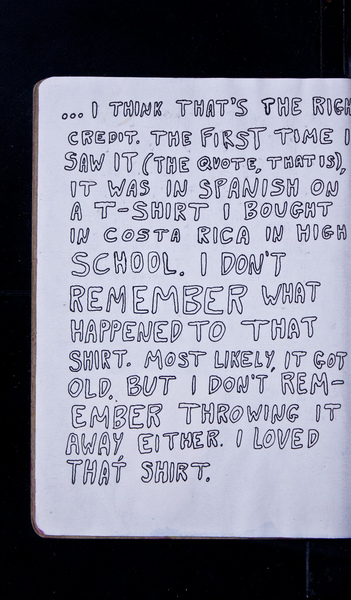 ... I THINK THAT'S THE RIGH
CREDIT. THE FIRST TIME I
SAW IT (THE QUOTE, THAT IS),
IT WAS IN SPANISH ON
A T-SHIRT I BOUGHT
IN COSTA RICA IN HIGH
SCHOOL. I DON'T
REMEMBER WHAT
HAPPENED TO THAT
SHIRT. MOST LIKELY, IT GOT
OLD. BUT I DON'T REM-
EMBER THROWING IT
AWAY EITHER. I LOVED
THAT SHIRT.